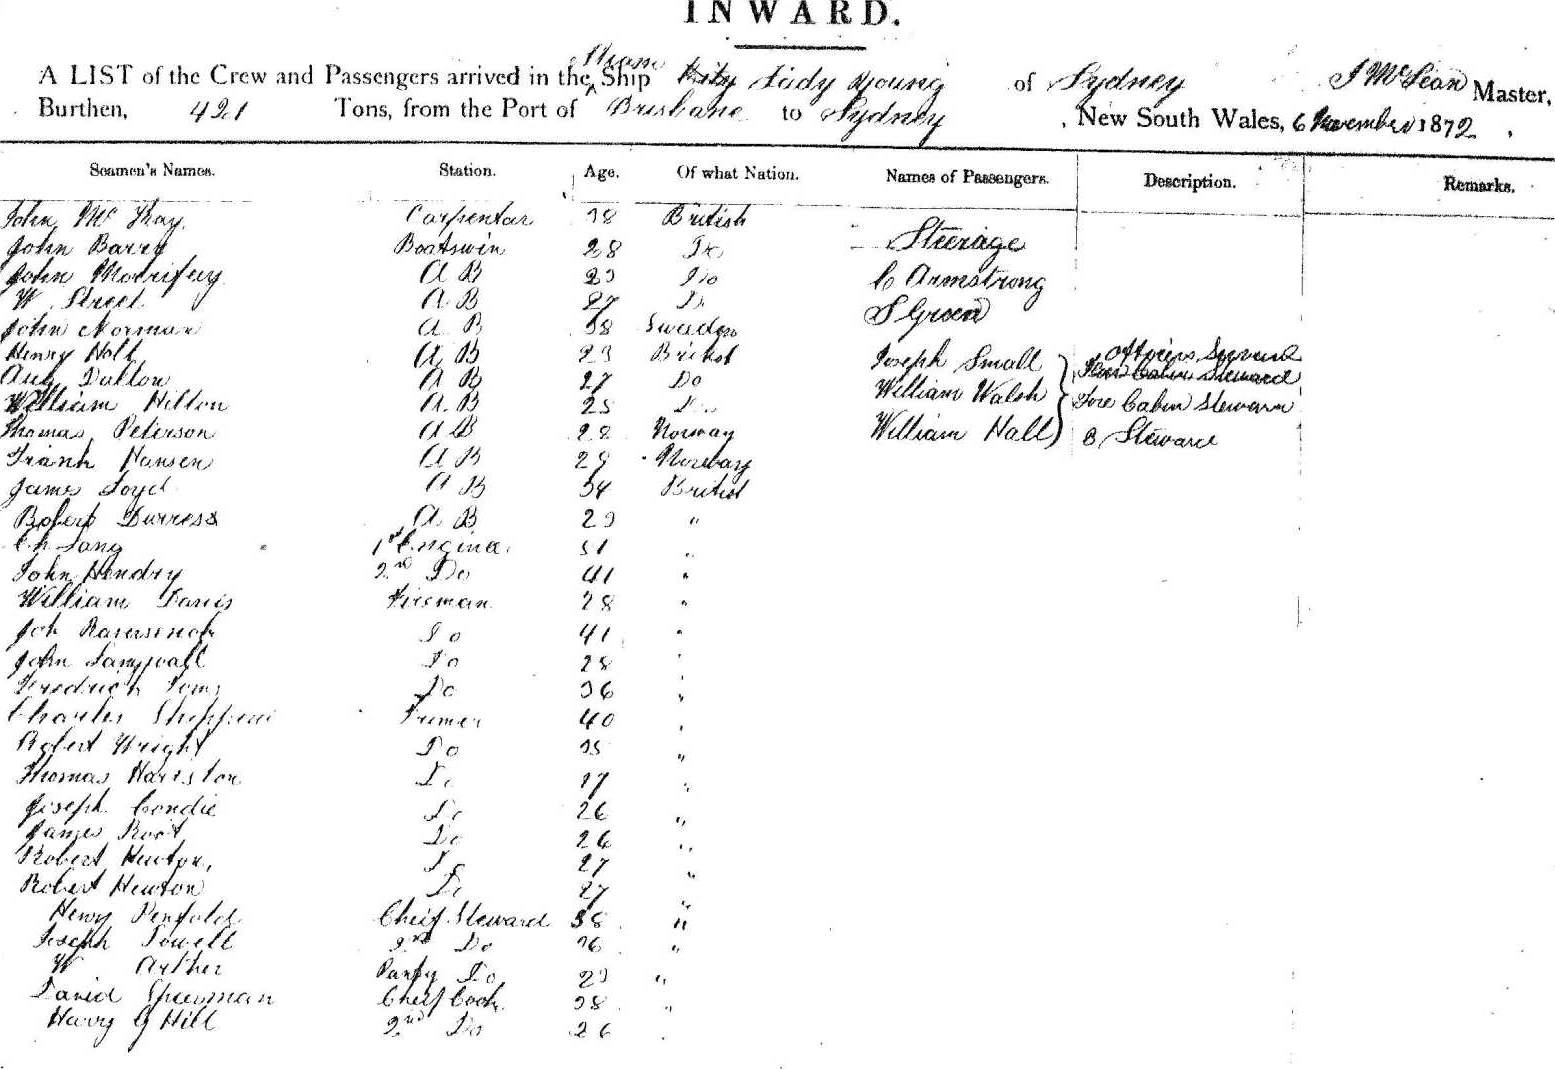 INWARD.
A LIST of the Crew and Passengers arrived in the Steam Ship Lady Young of Sydney J McLean Master,
Burthen, 421 Tons, from the Port of Brisbane to Sydney , New South Wales, 6 November 1872
Seamen's Names. Station. Age. Of what Nation. Names of Passengers. Description. Remarks.
John Mc Kay Carpentar 38 British
John Barry Boatswin 28 Do Steerage
John A B Do C Armstrong
W Street A B 27 Do S Green
John Norman A B 38 Sweeden
Henry Holt A B 23 British Joseph Small officers Servant
Aug Dutton A B 27 Do William Walsh Fore Cabin Steward
William Hilton A B 25 Do Fore Cabin Steward
Thomas Peterson A B 28 Norway William Hall B Steward
Frank Hansen A B 29 Norway
James Loyd A B 34 British
Robert Durress A B "
Ch Lang 1st Engineer 51 "
John Hendry 2nd Do 41 "
William Davis Fireman 28 "
Do 41 "
John Do 28 "
Fredrick Do 36 "
Charles 40 "
Robert Wright Do "
Thomas Do "
Joseph Condie Do 26 "
James Root Do 26 "
Robert Newton, Do 27 "
Robert Newton Do 27 "
Henry Penfold Cheif Steward 38 "
Joseph Powell 2nd Do "
W Arther Pantry Do "
David Speerman Cheif Cook 38 "
Harry G Hill 2nd Do 26 "